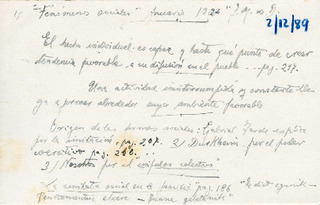 1) "Fenómenos sociales" Anuario 1924
2/12/89
El hecho individual es capaz y hasta qué punto de crear
tendencia favorable a su difusión en el pueblo ... pag. 297.
Una actividad ininterrumpida y constante lle
ga a procrear alrededor suyo ambiente favorable
Origen de las normas sociales: Gabriel Tarde explica
por la imitación, pag. 207. 2) Durkheim por el poder
coercitivo pag. 210.
3) Nosotros por el "
colectivo"
social en la familia pag. 186